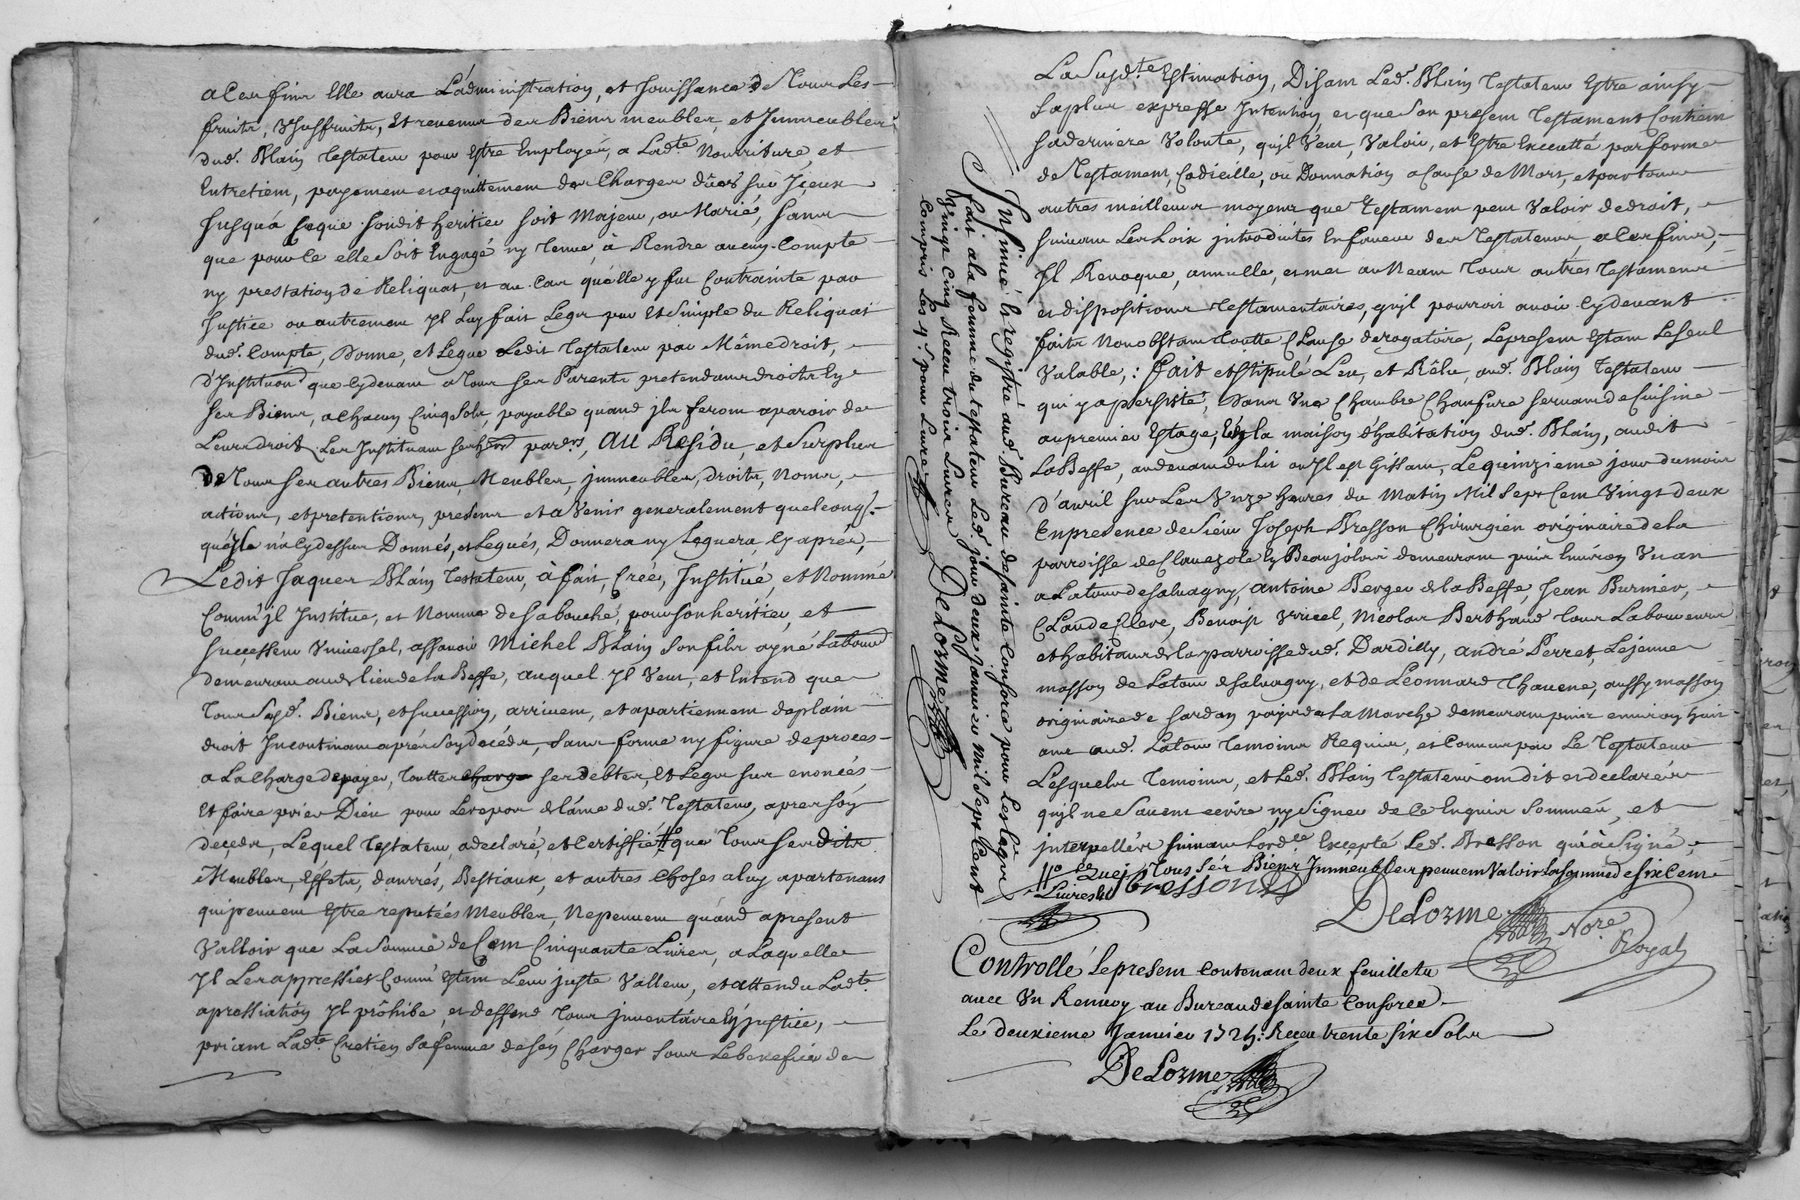 a Ces fins Elle aura L'administration, et Jouissance de Tous Les
fruits, Usuffruits, Et revenus des Biens meubles, et Immeubles
dud. Blain Testateur pour Estre Employés, a Lad.te Nourriture, et
Entretiens, payement et aquittement des Charges dûes sur Iceux
Jusqu'á Ceque Soudit heritier soit Majeur, ou Marié, sans
que pour Ce elle soit Engagé ny Tenue, à Rendre aucun Compte
ny prestation de Reliquat, et au Cas quélle y fut Contrainte par
Justice ou autrement Il Luy fait Legs pur Et Simple du Reliquat
dud. Compte, Donne, et Legue Ledit Testateur par Même droit,
d'Institution que Cydevant a Tous ses Parents pretendants droits Ey
Ses Biens, a Chacun Cinq Sols, payable quand jls feront aparoir de
Leurs droit Les Instituant ses par.ers, AU Residu, et Surplus
De Tous ses autres Biens, Meubles, jmmeubles, droits, Noms,
actions, et pretentions, presents et a Venir generalement quelconq.
quejl n'a Cydessus Donnés, et Legués, Donnera ny Leguera Cy aprés,
Ledit Jaques Blain Testateur, à fait, Creé, Institué, et Nommé
Comm'jl Institue, et Nomme de sa bouche, pour son heritier, et
Successeur Universel, assavoir Michel Blain Son fils ayné Laboureur
demeurant aud. lieu de la Beffe, auquel Jl Veut, et Entend que
Tous Sesd. Biens, et succession, arrivent, et apartiennent de plain
droit Incontinant aprés Soy decéda, sans forme ny figure de proces
a La Charge de payer, Touttes ses debtes Et Legs sus enoncés
Et faire prier Dieu pour Le repos de l'áme dud. Testateur, apres sóy
decéda, Lequel Testateur, a declaré, et Certiffié # que Tous ses dits
Meubles, Effets, danrrés, Bestiaux, et autres Choses a luy apartenans
qui peuvent Estre reputées Meubles, Ne peuvent quánd apresent
Valloir que La Somme de Cent Cinquante Livres, a Laquelle
Jl Les apressiés Comm' Estant Leur juste Valleur, et attendu Lad.te
apressiation Jl prôhibe, et deffend Tous jnventáire Ey justice,
priant Lad.te Cretien Sa femme de sén Charger Sous Le benefice de
La Susd.te Estimation, Disant Led. Blain Testateur Estre ainsy
Sa plus expresse Intention et que Son present Testament Contient
Sa derniere Volonté, qu'jl Veut, Valoir, et Estre Executté par forme
de Testament, Codicille, ou Donnation a Cause de Mort, et par tous
autres meilleurs moyens que Testament peut Valoir de droit,
Suivant Les Loix jntroduites En faveur des Testateurs, a Ces fins,
Jl Revoque, annulle, et met au Neant Tous autres Testaments
et dispositions Testamentaires, qu'jl pourroit avoir Cydevant
faits Nonobstant Toutte Clause derogatoire, Le present Estant Le seul
Valable, : fait et stipulé Leu, et Rêlu, aud. Blain Testateur
qui y a persisté, Dans Une Chambre Chaufure servant de Cuisine
au premier Estage, de la maison d'habitation dud. Blain, audit
La Beffe, au devant du lit ou Jl est Gissant, Le quinzieme jour du mois
d'avril Sur Les Unze heures du Matin Mil Sept Cent Vingt deux
En presence de Sieur Joseph Bresson Chirurgien originaire de La
parroisse de Claveisole Ey Beaujolois demeurant puis Environ Un an
a La tour de Salvagny, antoine Berger de la Beffe, Jean Burnier,
Claude Cleve, Benoist Vricel, Nicolas Berthaud Tous Laboureurs
et habitans de la parroisse dud. Dardilly, andré Perret, Le jeune
masson de La tour de Salvagny, et de Leonnard Thavene, aussy masson
originaire de Sardan païs de La Marche demeurant puis environ huit
ans aud. Latour Temoins Requis, et Connus par Le Testateur
Lesquels Temoins, et Led. Blain Testateur ont dit et declaré
qu'jls ne Savent ecrire ny Signer de Ce Enquis Sommés, et
jnterpellés Suivant Lord.ce Excepté Led. Bresson qui à Signé,
# Et Que Tous Ses Biens Immeubles peuvent Valoir La Somme de Six Cent
Livres Bresson
DeLorme No.re
Royal
Controllé Le present Contenant deux feuillets
avec Un Renvoy au Bureau de Sainte Consorce
Le deuxieme Janvier 1724: Receu trente Six Sols
DeLorme
Insinué Et registré aud. Bureau de Sainte Consorce pour Les Legs
fait a La femme du testateur Led. jour deux Janvier Mil Sept Cent
Vingt Cinq Receu trois Livres
Compris Les 4 s. pour Livre
DeLorme